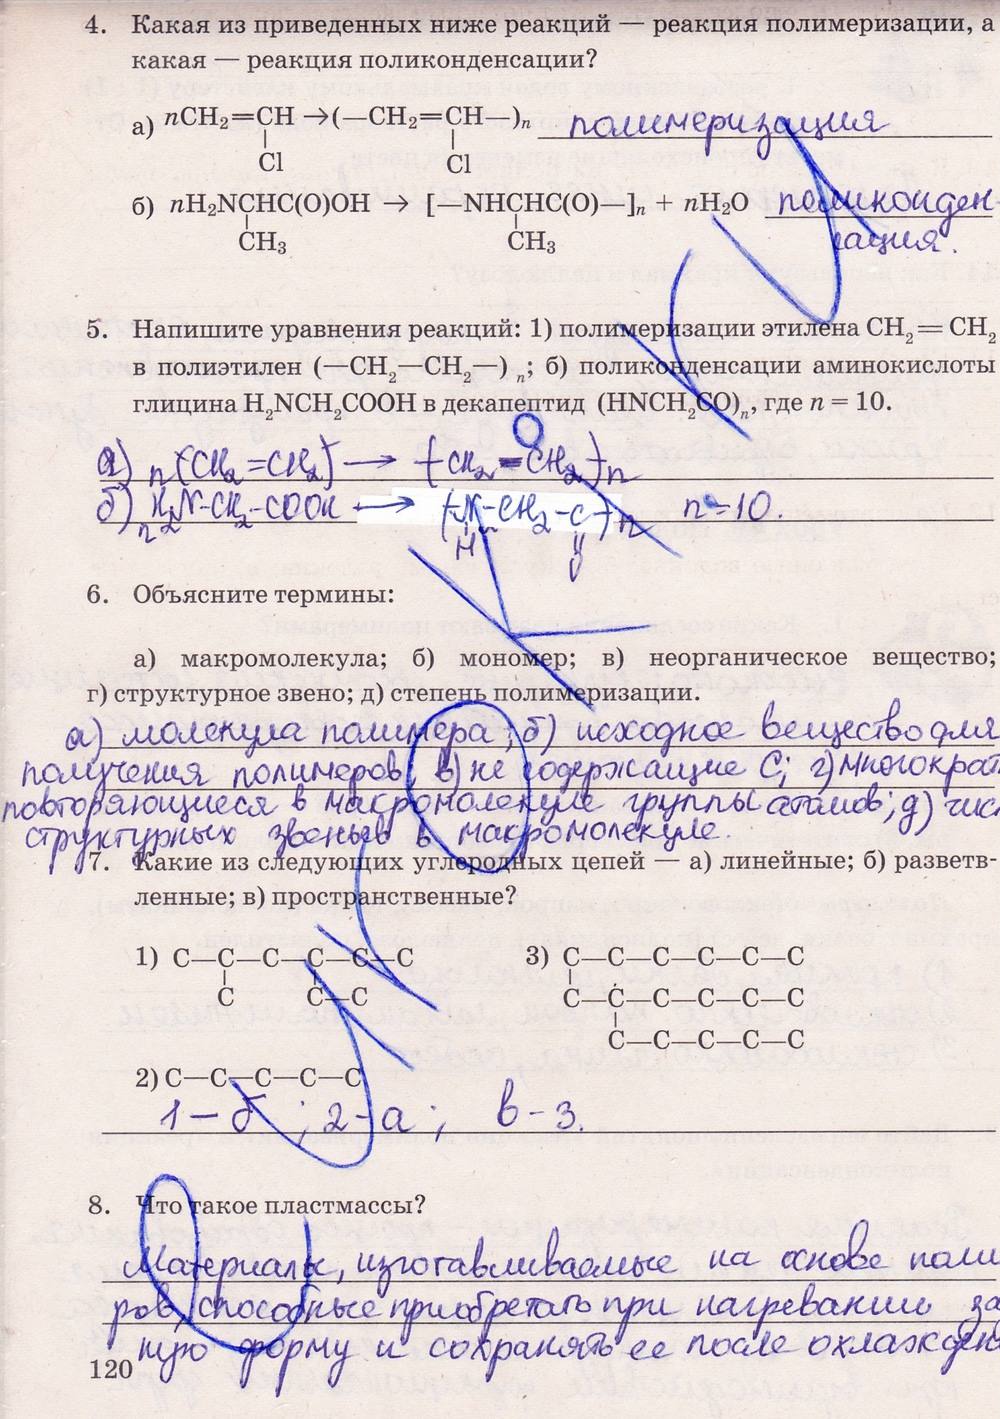 4. Какая из приведенных ниже реакций — реакция полимеризации, а
какая — реакция поликонденсации?
а) nCH₂=CH →(—CH₂=CH—)ₙ полимеризация
Cl Cl
б) nH₂NCHC(O)OH → [—NHCHC(O)—]ₙ + nH₂O поликонден
CH₃ CH₃ сация.
5. Напишите уравнения реакций: 1) полимеризации этилена CH₂=CH₂
в полиэтилен (—CH₂—CH₂—)ₙ; б) поликонденсации аминокислоты
глицина H₂NCH₂COOH в декапептид (HNCH₂CO)ₙ, где n = 10.
а) n(CH₂=CH₂) → (-CH₂=CH₂)n
б) n H₂N-CH₂-COOH → (-N-CH₂-C-)n n=10.
H
6. Объясните термины:
а) макромолекула; б) мономер; в) неорганическое вещество;
г) структурное звено; д) степень полимеризации.
а) молекула полимера; б) исходное вещество для
получения полимеров, в) не содержащие С; г) многократ
повторяющиеся в макромолекуле группы атомов; д) чис
структурных звеньев в макромолекуле.
7. Какие из следующих углеродных цепей — а) линейные; б) разветв-
ленные; в) пространственные?
1) C—C—C—C—C—C 3) C—C—C—C—C—C
C C—C C—C—C—C—C—C
C—C—C—C—C
2) C—C—C—C—C
1 – б ; 2 - а ; в - 3.
8. Что такое пластмассы?
Материалы, изготавливаемые на основе поли
ров, способные приобретать при нагревании за
ную форму и сохранять ее после охлажден
120